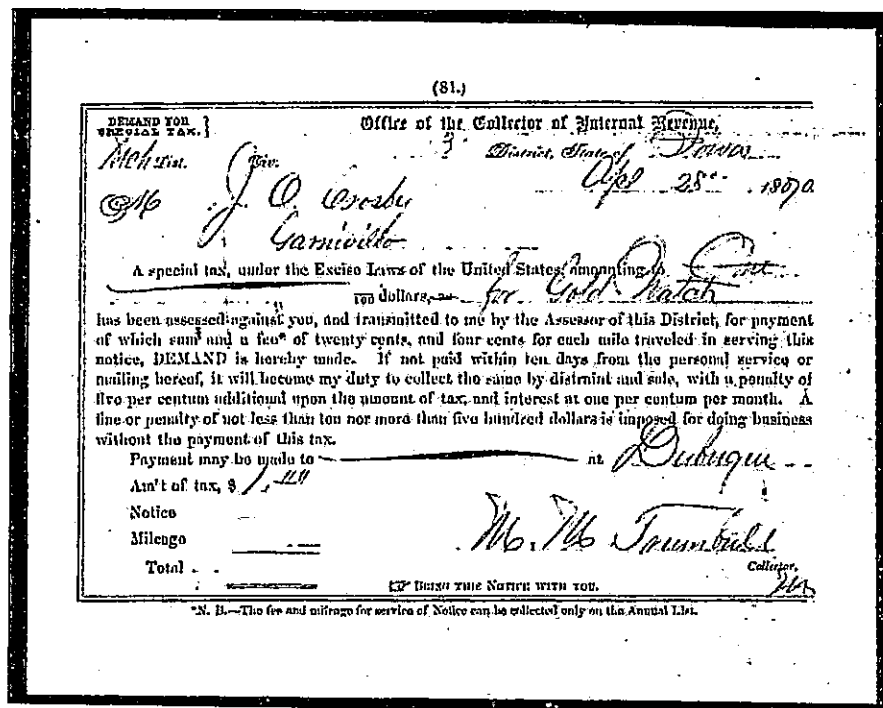 (81.)
DEMAND FOR SPECIAL TAX.} Office of the Collector of Internal Revenue,
Mch List. Div. 3 District, State of Iowa
Apl 28" 1870
J. O. Crosby
Garnivillo
A special tax, under the Excise Laws of the United States, amounting to One
100 dollars, for Gold Watch
has been assessed against you, and transmitted to me by the Assessor of this District, for payment
of which sum and a fee* of twenty cents, and four cents for each mile traveled in serving this
notice, DEMAND is hereby made. If not paid within ten days from the personal service or
mailing hereof, it will become my duty to collect the same by distraint and sale, with a penalty of
five per centum additional upon the amount of tax, and interest at one per centum per month. A
fine or penalty of not less than ten nor more than five hundred dollars is imposed for doing business
without the payment of this tax.
Payment may be made to at Dubuque
Am't of tax, $ 1.00
Notice
Mileage M. M. Trumbull
Total Collector,
BRING THIS NOTICE WITH YOU.
*N. B.—The fee and mileage for service of Notice can be collected only on the Annual List.